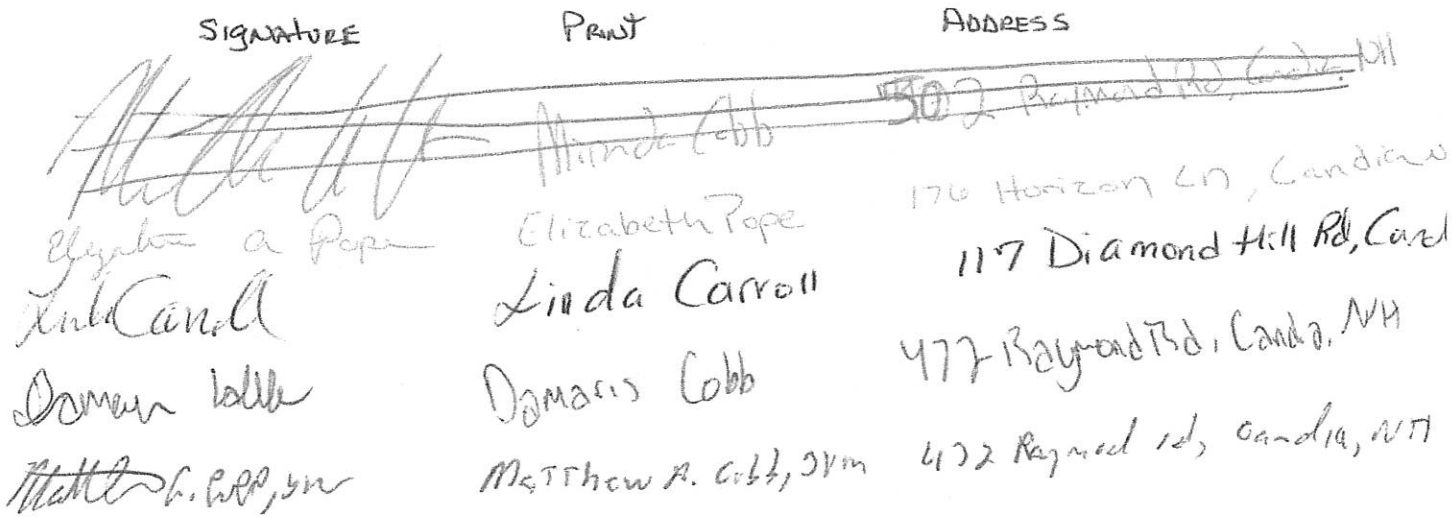 SIGNATURE PRINT ADDRESS
Cobb 502 Raymond Rd, Candia, NH
a Pope Elizabeth Pope 176 Horizon Ln, Candia
Linda Carroll Linda Carroll 117 Diamond Hill Rd, Cand
Damaris Cobb Damaris Cobb 472 Raymond Rd, Candia, NH
Matthew A. Cobb, Matthew A. Cobb, 472 Raymond rd, Candia, NH